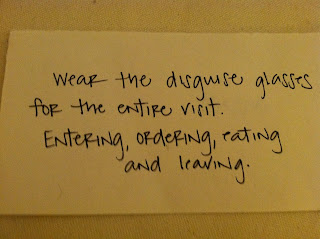 Wear the disguise glasses
for the entire visit.
Entering, ordering, eating
and leaving.